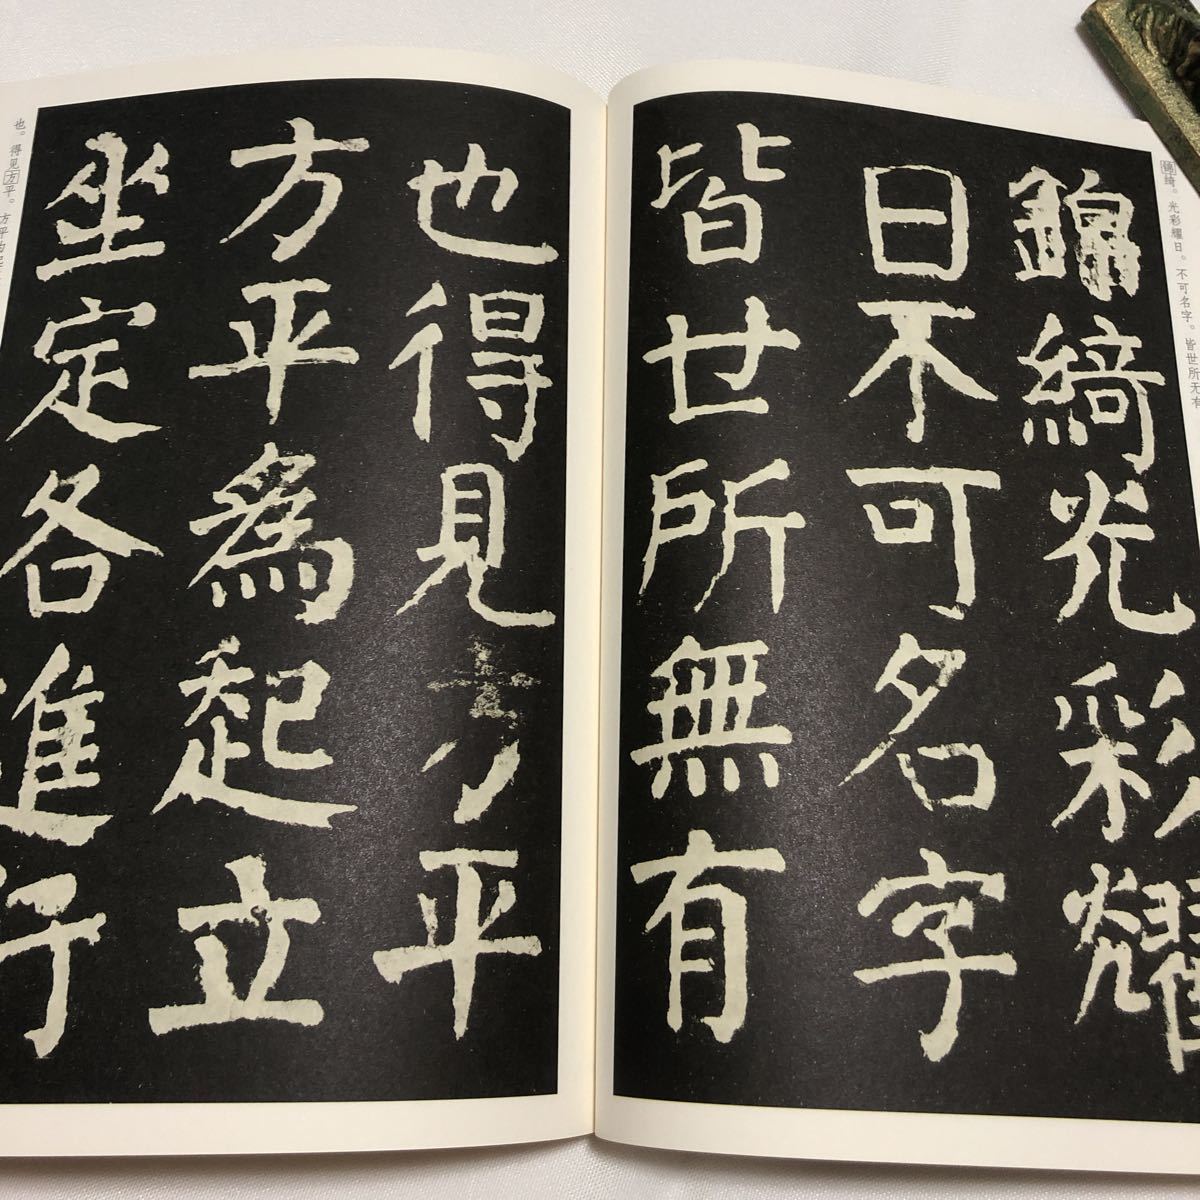 錦綺。光彩耀日。不可名字。皆世所无有
錦綺光彩耀
日不可名字
皆世所無有
也得見方平
方平為起立
坐定各進行
也。得見方平。方平為起